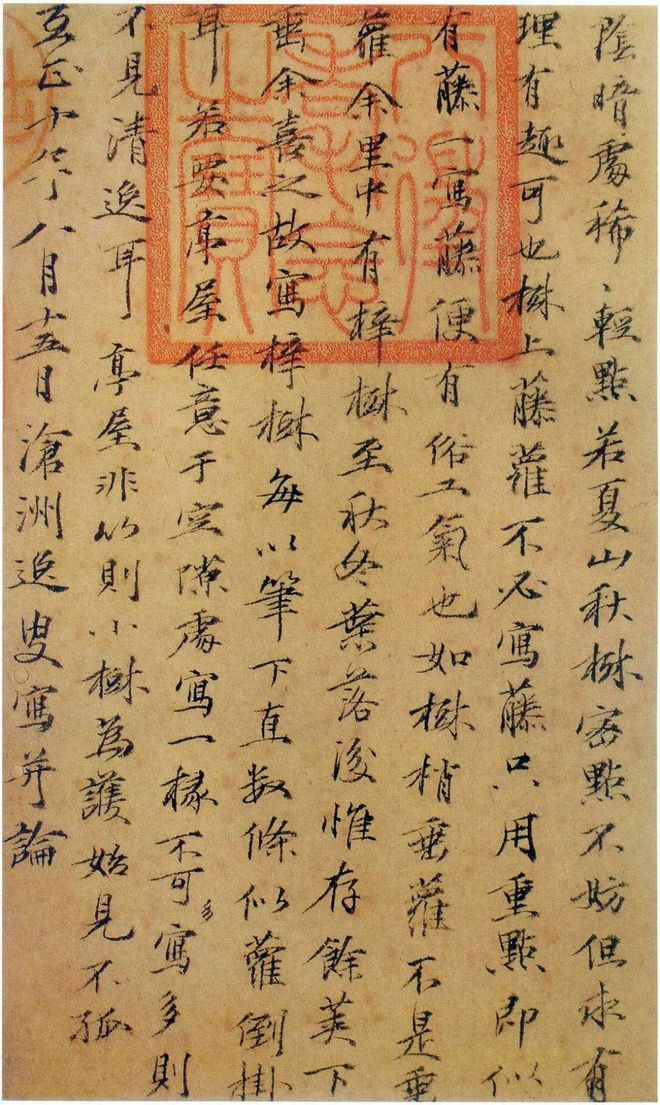 陰暗處稀ゝ輕點若夏山秋樹密點不妨但求有
理有趣可也樹上藤蘿不必寫藤只用重點即似
有藤一寫藤便有俗工氣也如樹梢垂蘿不是垂
蘿余里中有梓樹至秋冬葉落後惟存餘莢下
垂余喜之故寫梓樹每以筆下直数條似蘿倒掛
耳若要亭屋任意于空隙處寫一椽不可多寫多則
不見清逸耳亭屋非竹則小樹為護始見不孤
至正十年八月十五日滄洲逸叟寫并論